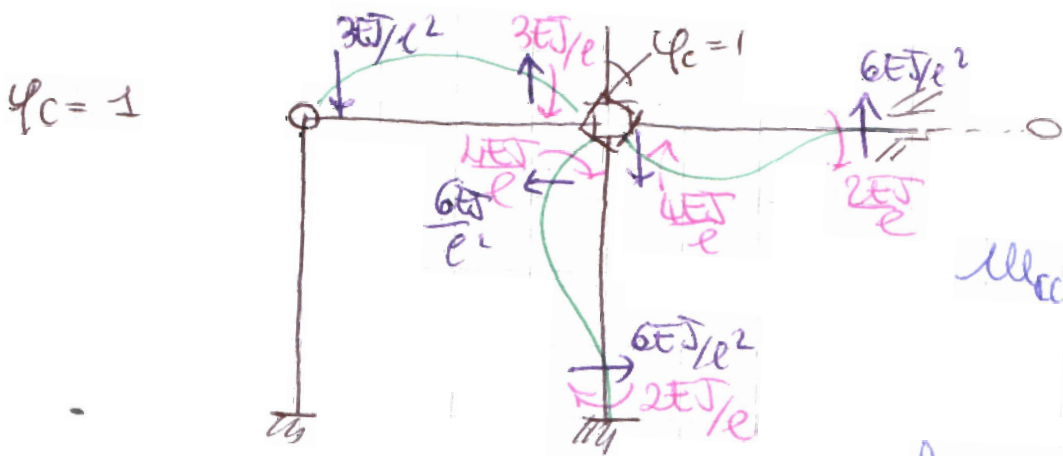 φ_C = 1
3EJ/ℓ²
3EJ/ℓ
φ_C = 1
6EJ/ℓ²
4EJ/ℓ
6EJ/ℓ²
4EJ/ℓ
2EJ/ℓ
m_CC
6EJ/ℓ²
2EJ/ℓ